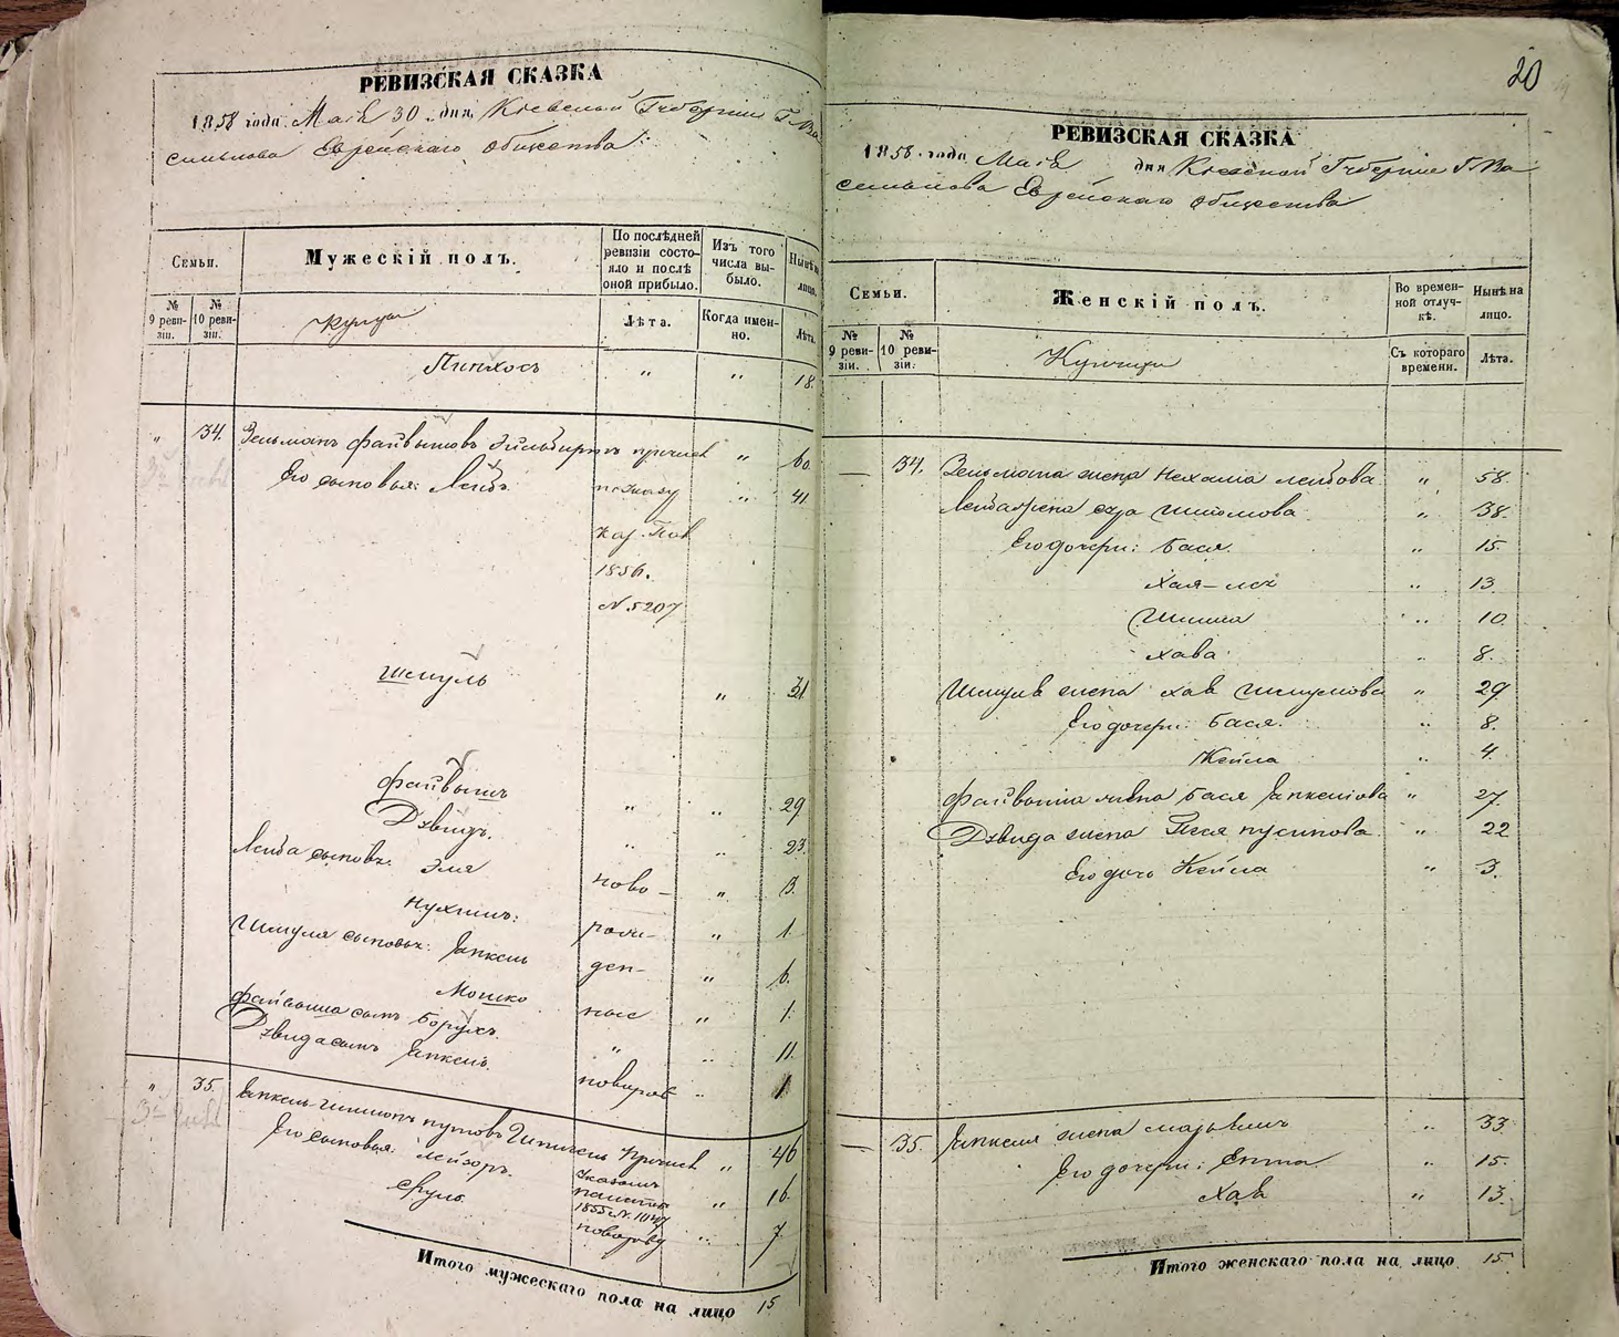 РЕВИЗСКАЯ СКАЗКА
1858 года Мая 30 дня, Кіевской Губерніи Г. Ва
силькова Еврейскаго общества.
Семьи.
Мужескій полъ.
По послѣдней ревизіи состояло и послѣ оной прибыло.
Изъ того числа выбыло.
Нынѣ на лицо.
№ 9 ревизіи.
№ 10 ревизіи.
Купцы
Лѣта.
Когда именно.
Лѣта.
Пинхосъ " " 18.
" 34. Зельманъ Файвышовъ причисл " 60.
Его сыновья: Лейба по Указу " 41
Каз. Пал.
1856.
N. 5207
Шмуль " 31
Файвышъ " " 29
Дувидъ. " " 23.
Лейба сыновья: Эля ново- " 3.
Нухимъ: рож- " 1
Шмуля сыновья: Янкель ден- " 6.
Мошко ные " 1.
Файвыша сынъ Борухъ. " " 11.
Дувида сынъ Янкель. новорож " 1
" 35. Янкель-Шимонъ причисл " 46
Его сыновья: Лейзоръ. Указомъ палаты 1855 N. " 16.
Сруль. новорож " 7
Итого мужескаго пола на лицо 15
20
РЕВИЗСКАЯ СКАЗКА
1858 года Мая дня Кіевской Губерніи Г. Ва
силькова Еврейскаго общества
Семьи.
Женскій полъ.
Во временной отлучкѣ.
Нынѣ на лицо.
№ 9 ревизіи.
№ 10 ревизіи.
Купчихи
Съ котораго времени.
Лѣта.
— 34. Зельмана жена Нехама Лейбова " 58.
Лейба жена Сура " 38.
Его дочери: Бася. " 15.
Хая-Лея " 13.
" 10.
Хава " 8.
Шмуля жена Хая Шмулова " 29
Его дочери: Бася. " 8.
Кейла " 4.
Файвыша жена Бася Янкелова " 27.
Дувида жена Песя Нусинова " 22
Его дочь Кейла " 3.
— 35. Янкеля жена Марьяшь " 33
Его дочери: Ента. " 15.
Хая " 13.
Итого женскаго пола на лицо 15